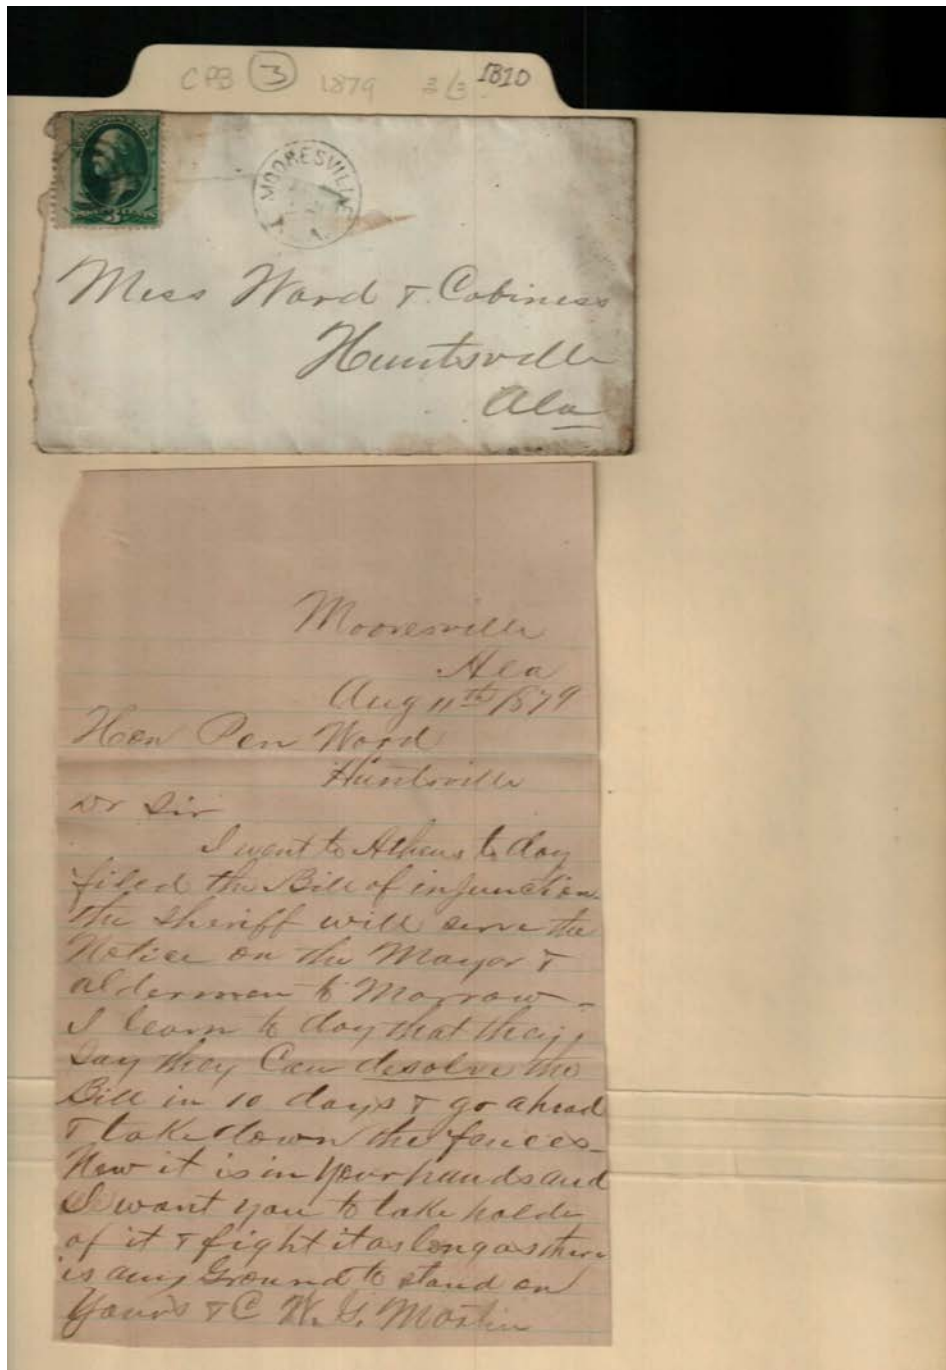 CPB 3 1879 3/3 1810
MOORESVILLE
Mess Ward & Cabiness
Huntsville
Ala
Mooresville
Ala
Aug 11th 1879
Hon Pen Ward
Huntsville
Dr Sir
I went to Athens to day
filed the Bill of injunction.
the sheriff will serve the
Notice on the Mayor &
aldermen to Morrow -
I learn to day that they
say they Can desolve the
Bill in 10 days & go ahead
& take down the fences -
Now it is in your hands and
I want you to take holde
of it & fight it as long as there
is any Ground to stand on
Yours &C W. G. Martin